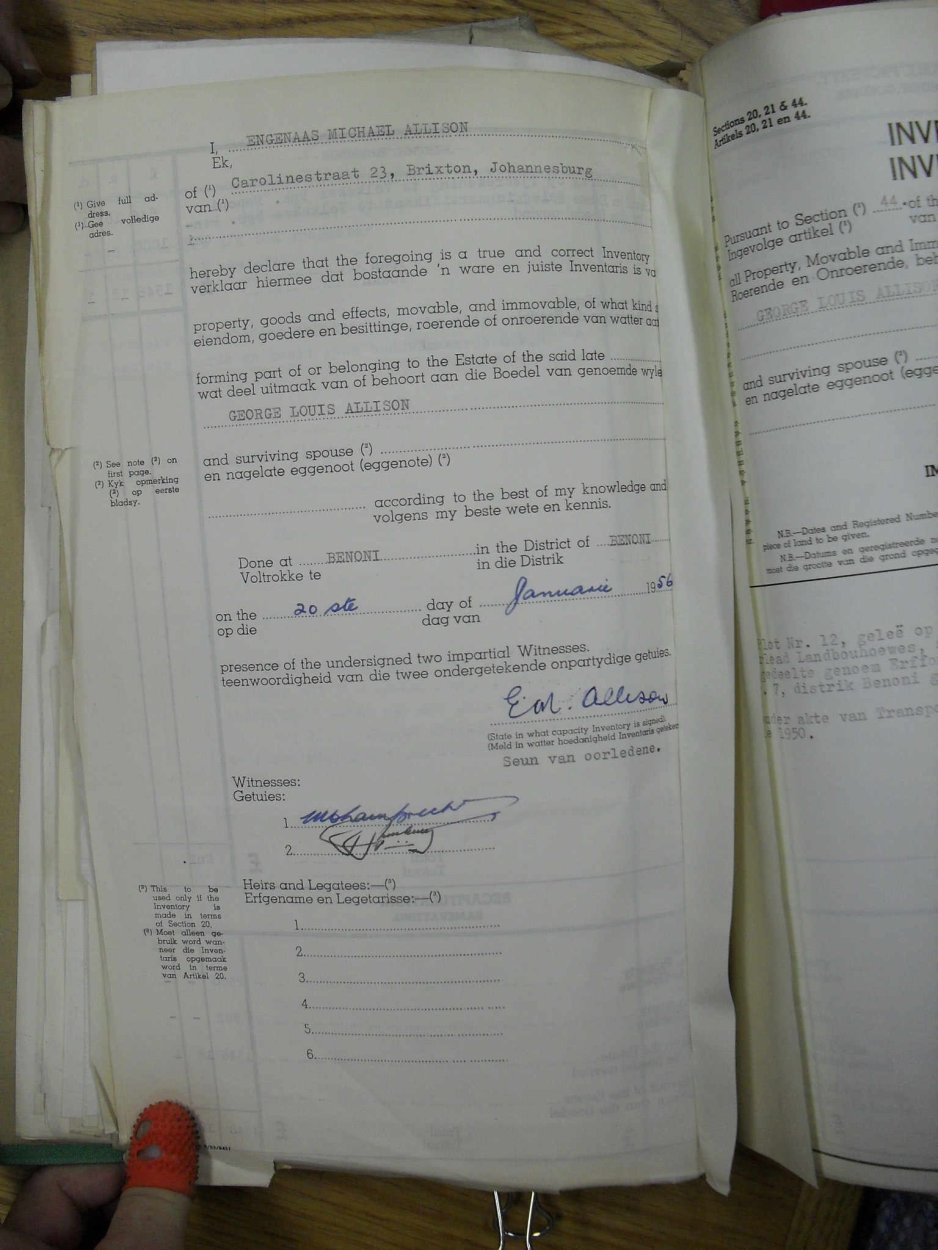 I, ENGENAAS MICHAEL ALLISON
Ek,
of (¹) Carolinestraat 23, Brixton, Johannesburg
van (¹)
(¹) Give full ad-
dress.
(¹) Gee volledige
adres.
hereby declare that the foregoing is a true and correct Inventory
verklaar hiermee dat bostaande 'n ware en juiste Inventaris is va
property, goods and effects, movable, and immovable, of what kind
eiendom, goedere en besittinge, roerende of onroerende van watter aa
forming part of or belonging to the Estate of the said late
wat deel uitmaak van of behoort aan die Boedel van genoemde wyle
GEORGE LOUIS ALLISON
(²) See note (²) on
first page.
(²) Kyk opmerking
(²) op eerste
bladsy.
and surviving spouse (²)
en nagelate eggenoot (eggenote) (²)
according to the best of my knowledge and
volgens my beste wete en kennis.
Done at BENONI in the District of BENONI
Voltrokke te in die Distrik
on the 20 ste day of Januarie 1956
op die dag van
presence of the undersigned two impartial Witnesses.
teenwoordigheid van die twee ondergetekende onpartydige getuies.
E.M. Allison
(State in what capacity Inventory is signed)
(Meld in watter hoedanigheid Inventaris geteken
Seun van oorledene.
Witnesses:
Getuies:
1.
2.
(³) This to be
used only if the
Inventory is
made in terms
of Section 20.
(³) Moet alleen ge-
bruik word wan-
neer die Inven-
taris opgemaak
word in terme
van Artikel 20.
Heirs and Legatees:—(³)
Erfgename en Legetarisse:—(³)
1.
2.
3.
4.
5.
6.
Sections 20, 21 & 44.
Artikels 20, 21 en 44.
INVE
INVE
Pursuant to Section (¹) 44 of th
Ingevolge artikel (¹) van
all Property, Movable and Imm
Roerende en Onroerende, beh
GEORGE LOUIS ALLISON
and surviving spouse (²)
en nagelate eggenoot (egge
IM
N.B.—Dates and Registered Numbe
piece of land to be given.
N.B.—Datums en geregistreerde n
moet die grootte van die grond opgeg
Plot Nr. 12, geleë op
Landbouhoewes,
gedeelte genoem Erffo
7, distrik Benoni g
akte van Transpo
1950.